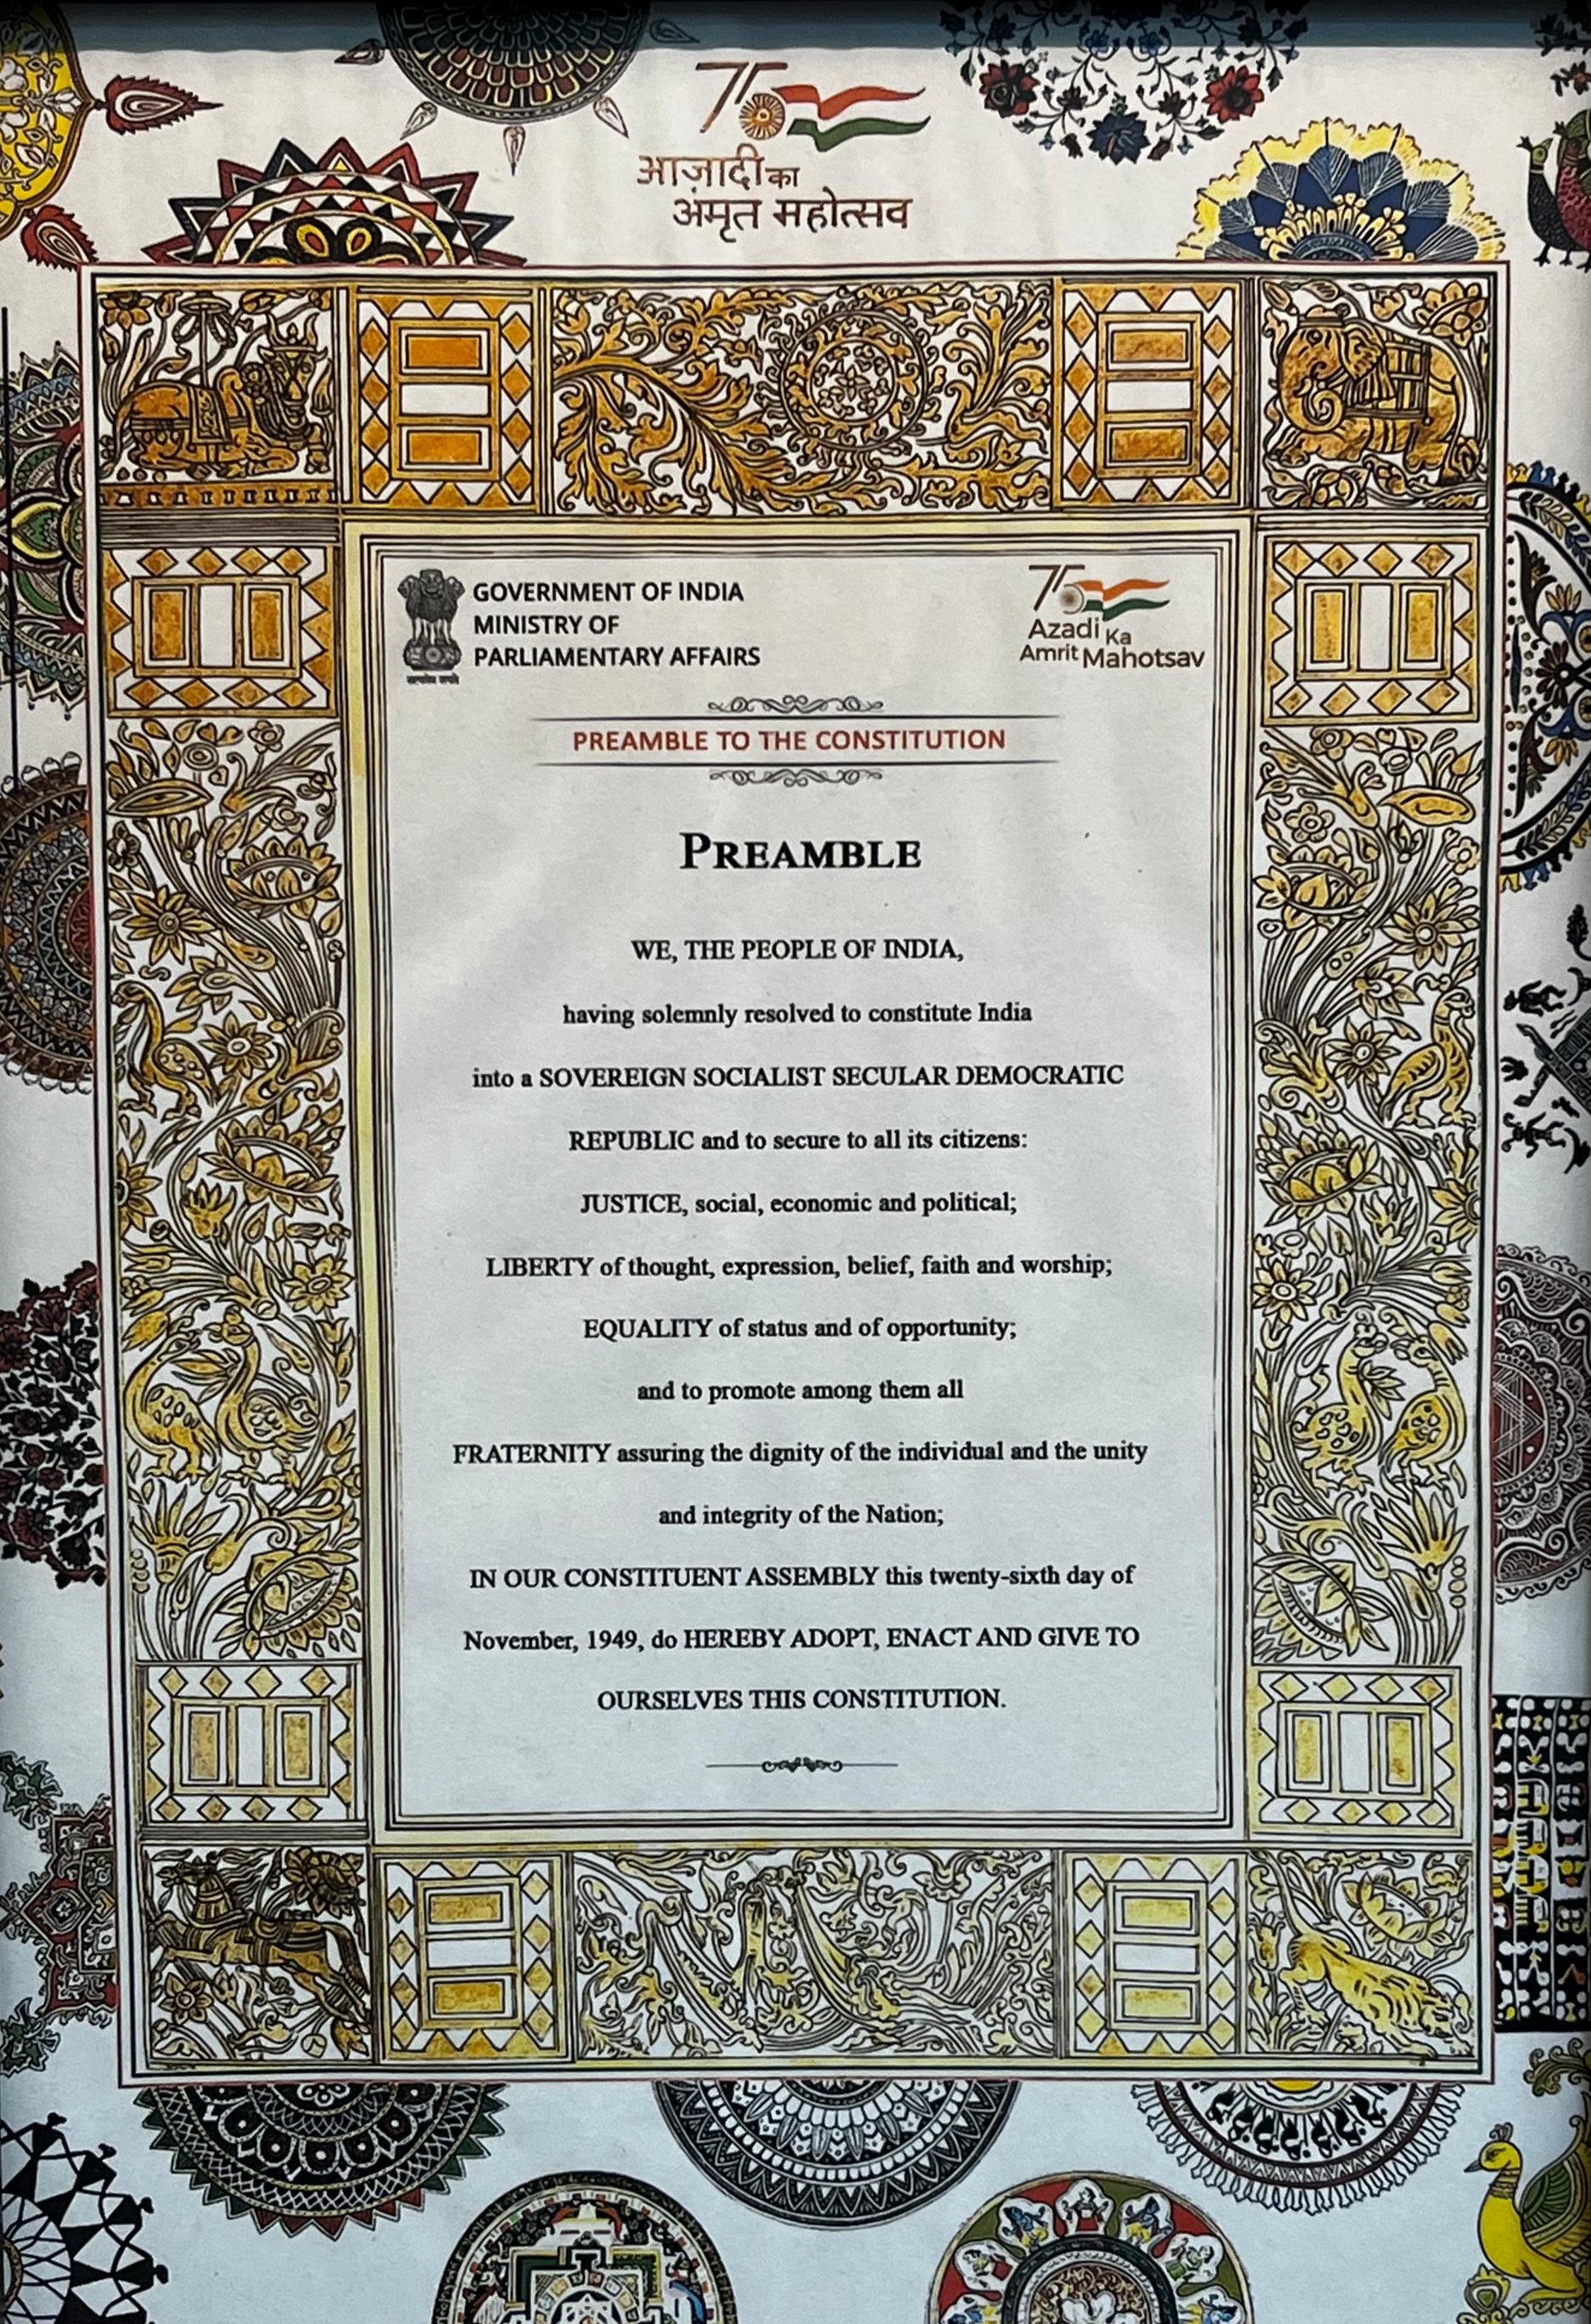 75
आज़ादी का
अमृत महोत्सव
GOVERNMENT OF INDIA
MINISTRY OF
PARLIAMENTARY AFFAIRS
सत्यमेव जयते
75
Azadi Ka
Amrit Mahotsav
PREAMBLE TO THE CONSTITUTION
PREAMBLE
WE, THE PEOPLE OF INDIA,
having solemnly resolved to constitute India
into a SOVEREIGN SOCIALIST SECULAR DEMOCRATIC
REPUBLIC and to secure to all its citizens:
JUSTICE, social, economic and political;
LIBERTY of thought, expression, belief, faith and worship;
EQUALITY of status and of opportunity;
and to promote among them all
FRATERNITY assuring the dignity of the individual and the unity
and integrity of the Nation;
IN OUR CONSTITUENT ASSEMBLY this twenty-sixth day of
November, 1949, do HEREBY ADOPT, ENACT AND GIVE TO
OURSELVES THIS CONSTITUTION.